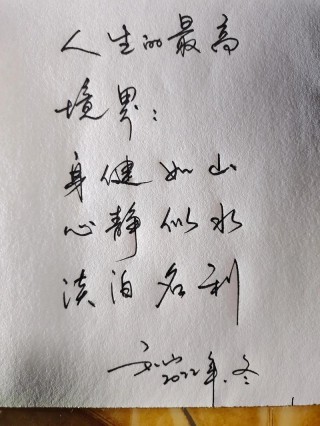 人生的最高
境界：
身健如山
心静似水
淡泊名利
2022年.冬